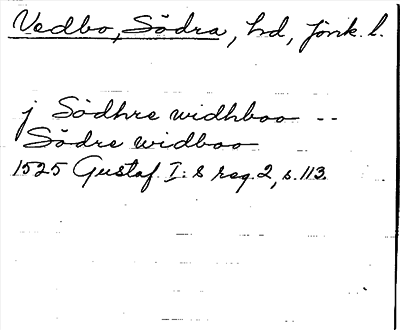 Vedbo, Södra, hd, Jönk. l.
j Södhre widhboo --
Södre widboo
1525 Gustaf I:s reg. 2, s. 113.